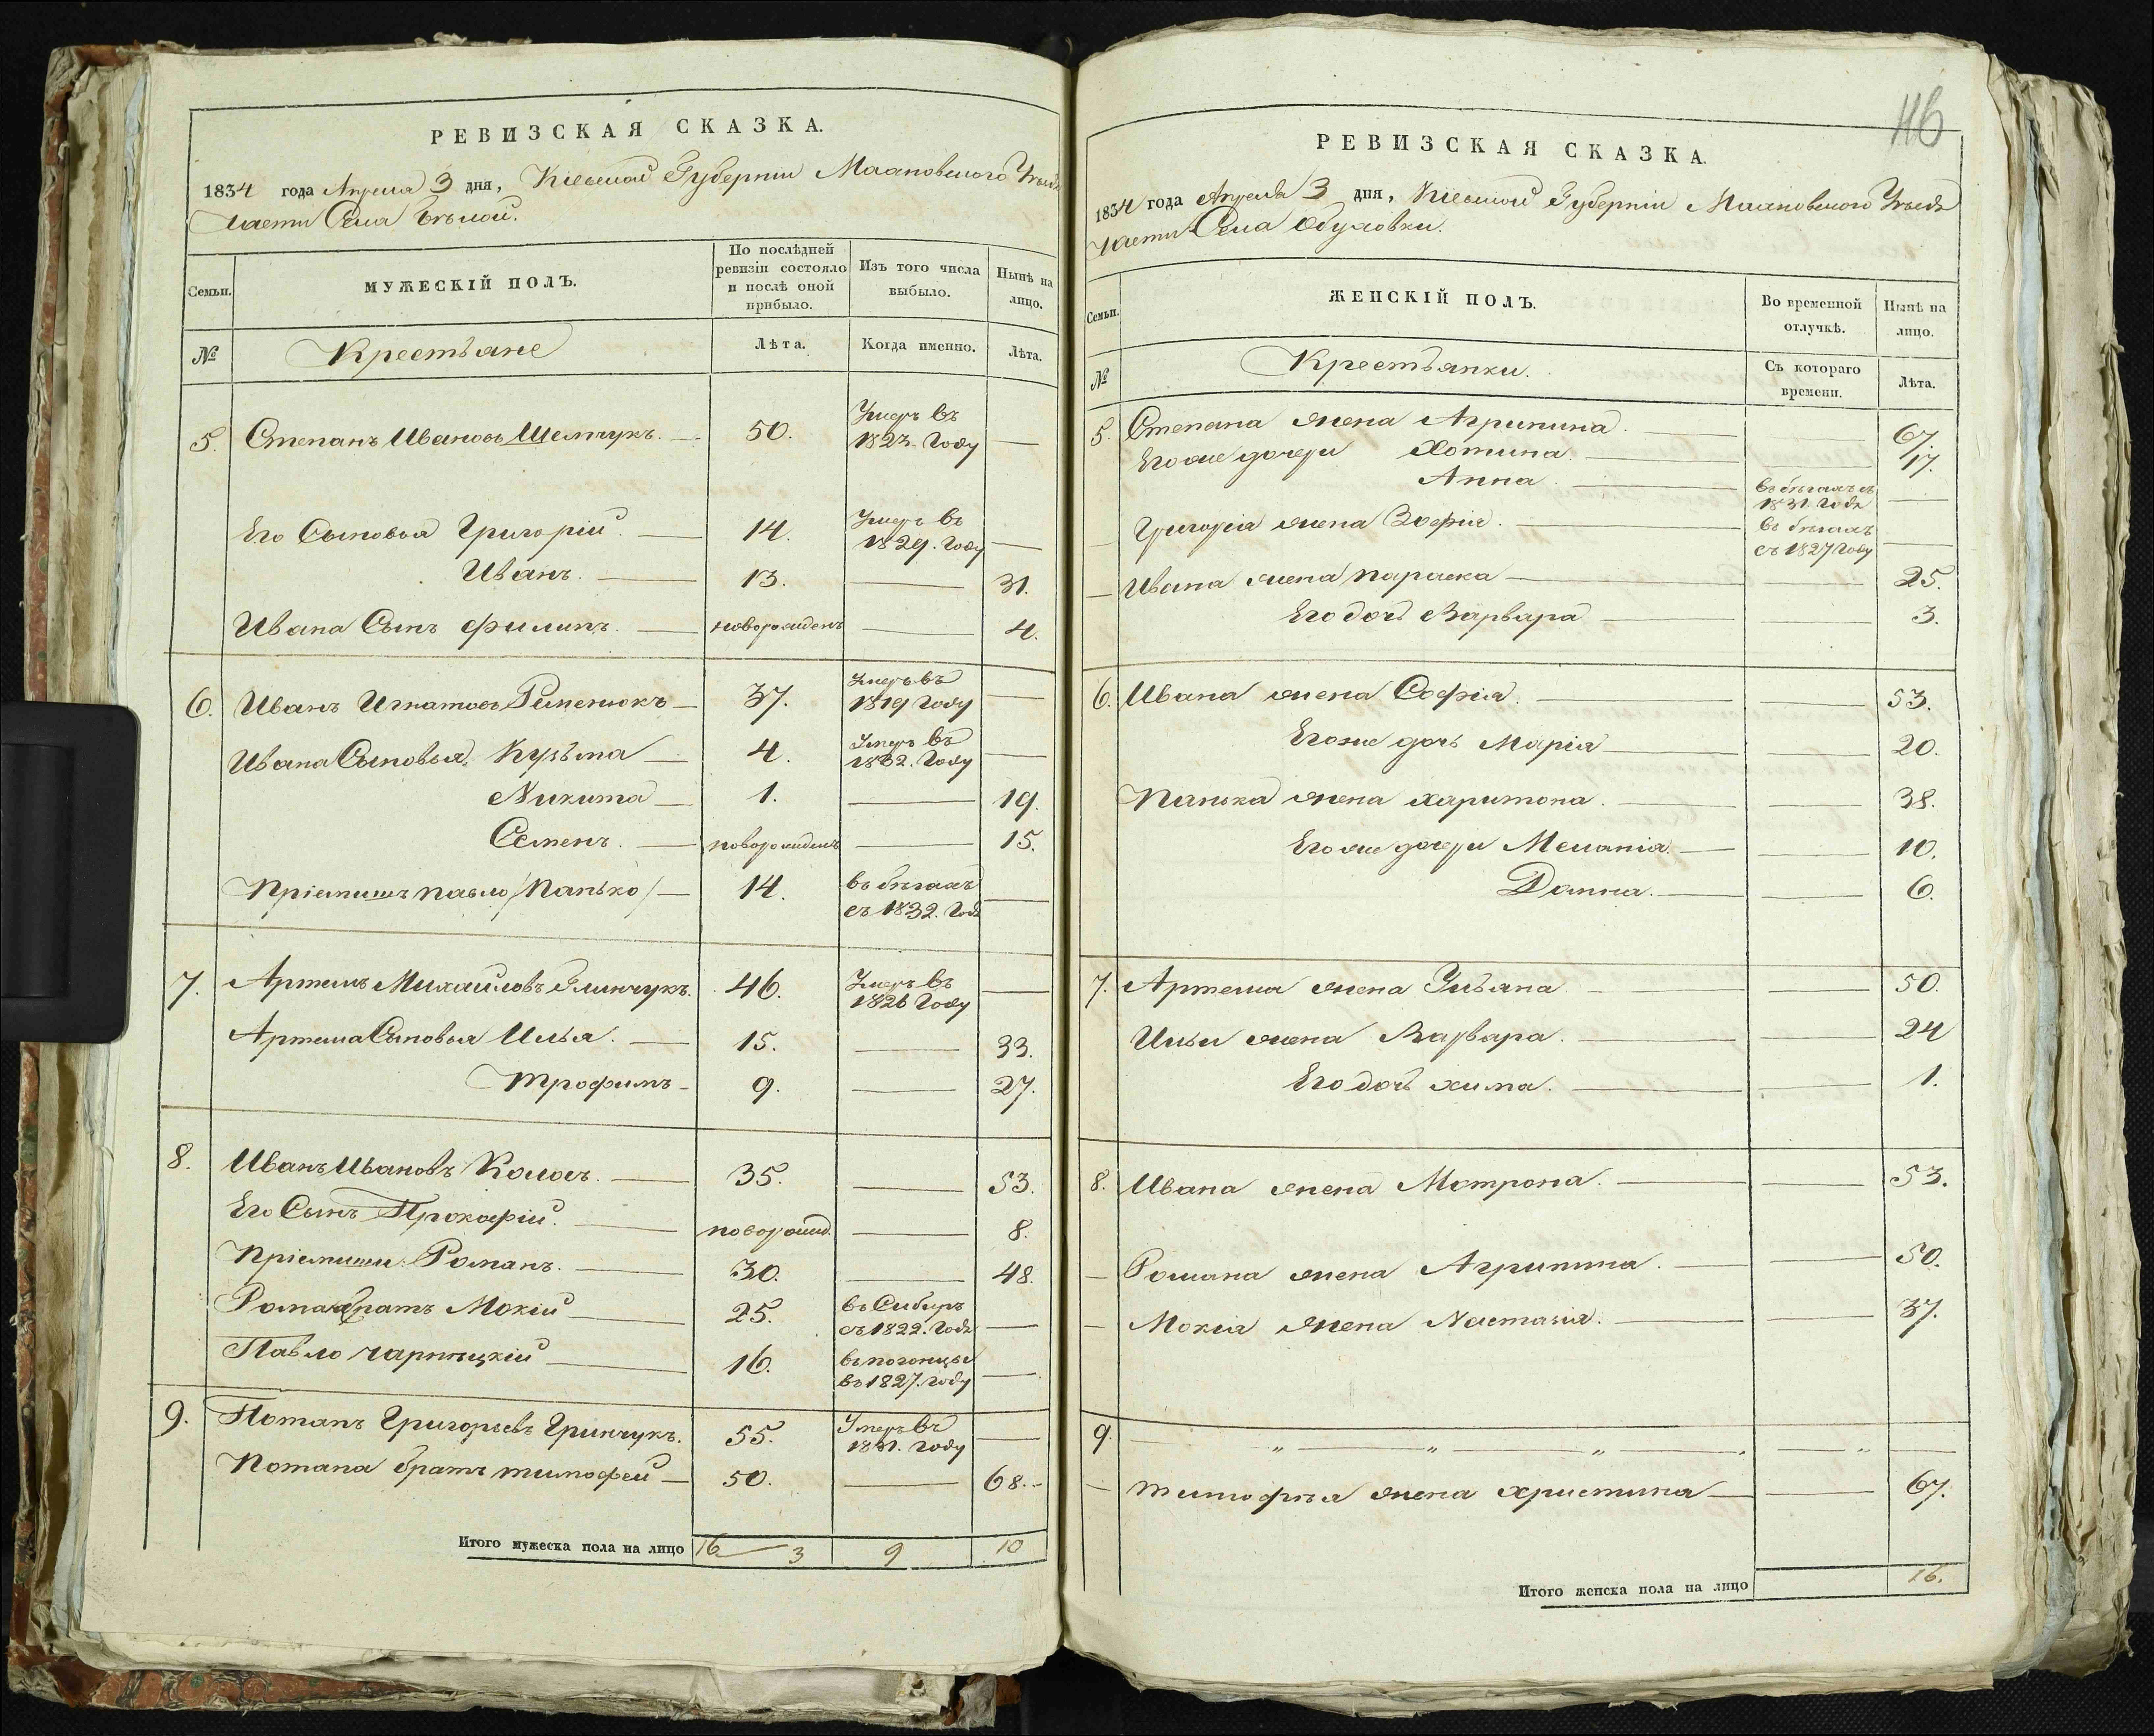 РЕВИЗСКАЯ СКАЗКА.
1834 года Апреля 3 дня, Кіевской Губерніи Махновского Уѣзда
части Села Бѣлой.
Семьи. МУЖЕСКІЙ ПОЛЪ. По послѣдней ревизіи состояло и послѣ оной прибыло. Изъ того числа выбыло. Нынѣ на лицо.
№ Крестьяне Лѣта. Когда именно. Лѣта.
5. Степанъ Ивановъ Шелчукъ. 50. Умеръ въ 1823 Году
Его Сыновья Григорій. 14. Умеръ въ 1829. Году
Иванъ. 13. 31.
Ивана Сынъ Филипъ. новорожденъ 4.
6. Иванъ Игнатовъ 37. Умеръ въ 1819 Году
Ивана Сыновья Кузьма 4. Умеръ въ 1832. Году
Никита 1. 19.
Семенъ. новорожденъ 15.
Пріемышъ Павло /Панько/ 14. въ бѣгахъ съ 1832. Года
7. Артемъ Михайловъ Глинчукъ. 46. Умеръ въ 1826 Году
Артема Сыновья Илья. 15. 33.
Трофимъ 9. 27.
8. Иванъ Ивановъ 35. 53.
Его Сынъ Прокофій. новорожд. 8.
Пріемыши: Романъ. 30. 48.
Романа братъ Мокій 25. въ Сибиръ съ 1822. Года
Павло 16. въ погонцы въ 1827. году
9. Потапъ Григорьевъ Гринчукъ. 55. Умеръ въ 1831. Году
Потапа братъ Тимофей 50. 68.
Итого мужеска пола на лицо 16 3 9 10
116
РЕВИЗСКАЯ СКАЗКА.
1834 года Апреля 3 дня, Кіевской Губерніи Махновского Уѣзда
части Села Обуховки.
Семьи. ЖЕНСКІЙ ПОЛЪ. Во временной отлучкѣ. Нынѣ на лицо.
№ Крестьянки. Съ котораго времени. Лѣта.
5. Степана жена Агрипина. 67.
Его же дочери Хотина. 17.
Анна. въ бѣгахъ съ 1831 Года
Григорія жена Зофія. въ бѣгахъ съ 1827 Году
Ивана жена Параска 25.
Его дочь Варвара 3.
6. Ивана жена Софія. 53.
Его же дочь Марія 20.
Панька жена Харитона. 38.
Его же дочери Меланія. 10.
Домна. 6.
7. Артема жена Ульяна. 50.
Ильи жена Варвара. 24
Его дочь Хима. 1.
8. Ивана жена Мотрона. 53.
Романа жена Агрипина. 50.
Мокія жена Настазія. 37.
9.
Тимофѣя жена Христина 67.
Итого женска пола на лицо 16.